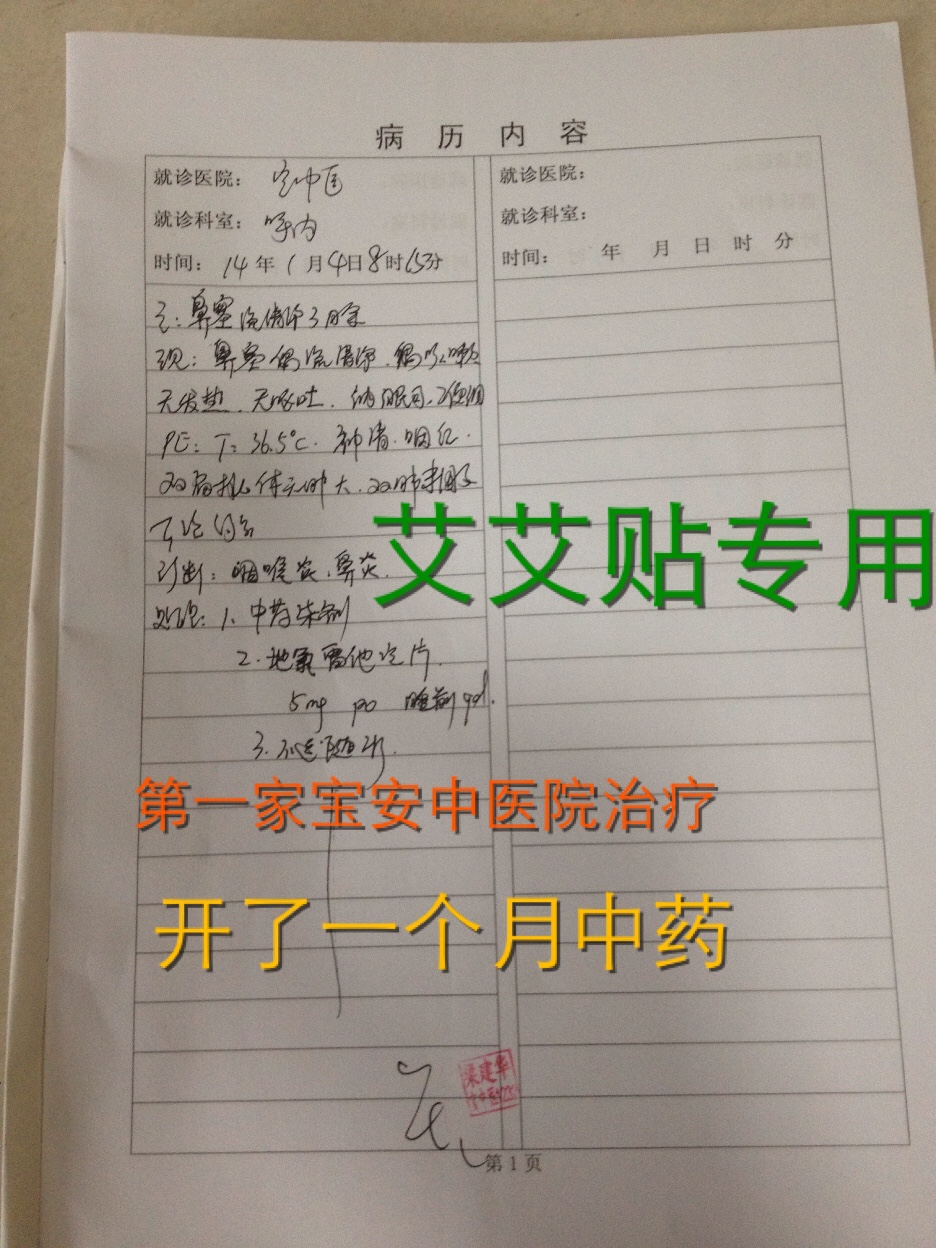 病 历 内 容
就诊医院: 宝中医
就诊科室: 呼内
时间: 14 年 1 月 4 日 8 时 15 分
主: 鼻塞流清涕3月余
现: 鼻塞偶流清涕. 偶咳嗽
无发热. 无呕吐. 纳眠可. 二便调
PE: T: 36.5℃. 神清. 咽红.
双扁桃体无肿大. 双肺未闻及
干湿啰音
诊断: 咽喉炎. 鼻炎.
处理: 1. 中药
2. 地氯雷他定片.
5mg po 睡前 qd.
3. 不适随诊.
就诊医院:
就诊科室:
时间: 年 月 日 时 分
艾艾贴专用
第一家宝安中医院治疗
开了一个月中药
梁建华
第 1 页